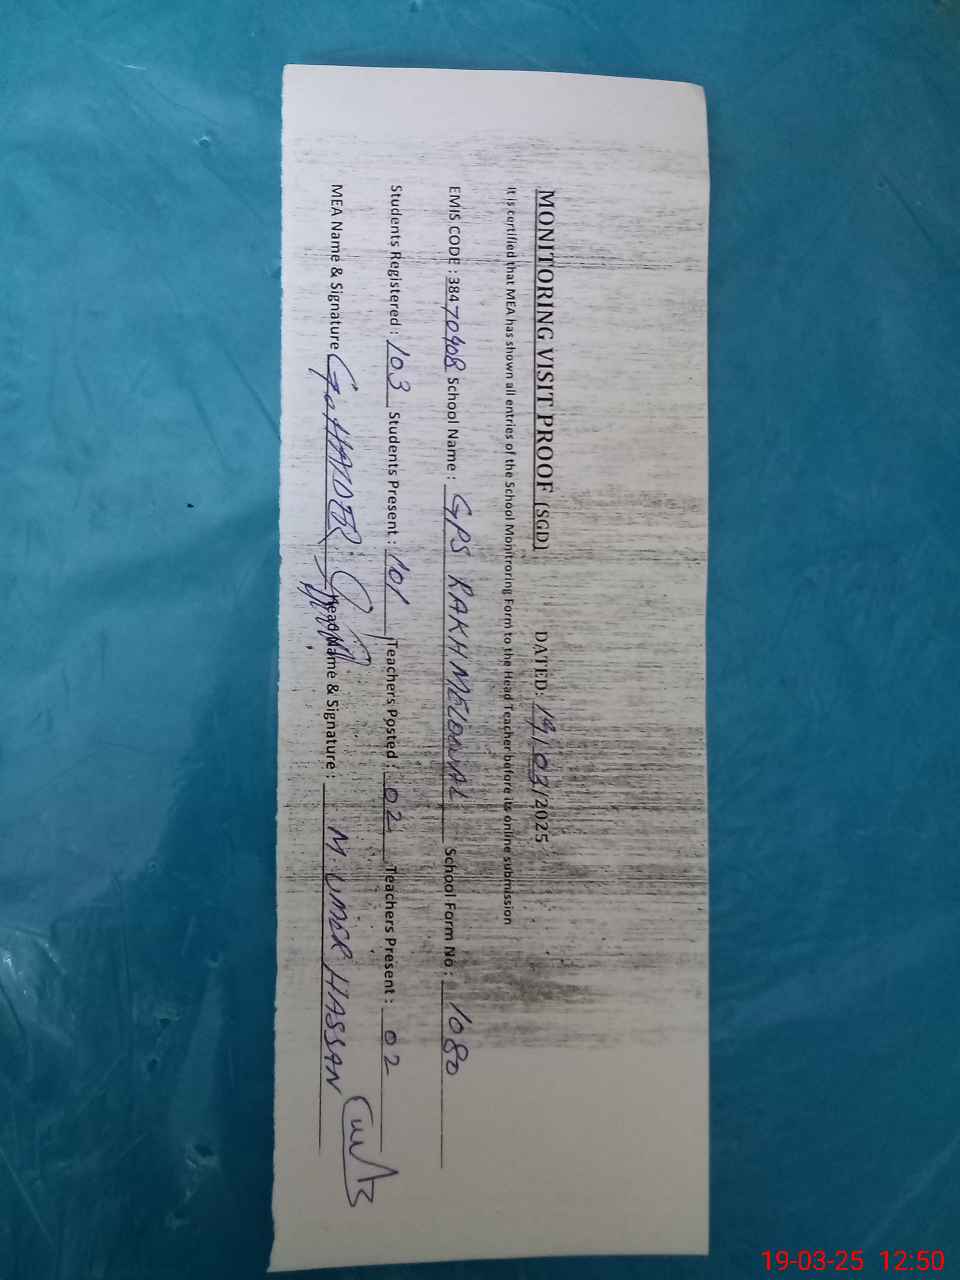 MONITORING VISIT PROOF (SGD) DATED: 19/03/2025
It is certified that MEA has shown all entries of the School Monitroring Form to the Head Teacher before its online submission
EMIS CODE : 38470408 School Name : GPS RAKH School Form No : 1080
Students Registered : 103 Students Present : 101 Teachers Posted : 02 Teachers Present : 02
MEA Name & Signature HAIDER Head Name & Signature : M. UMER HASSAN
19-03-25 12:50